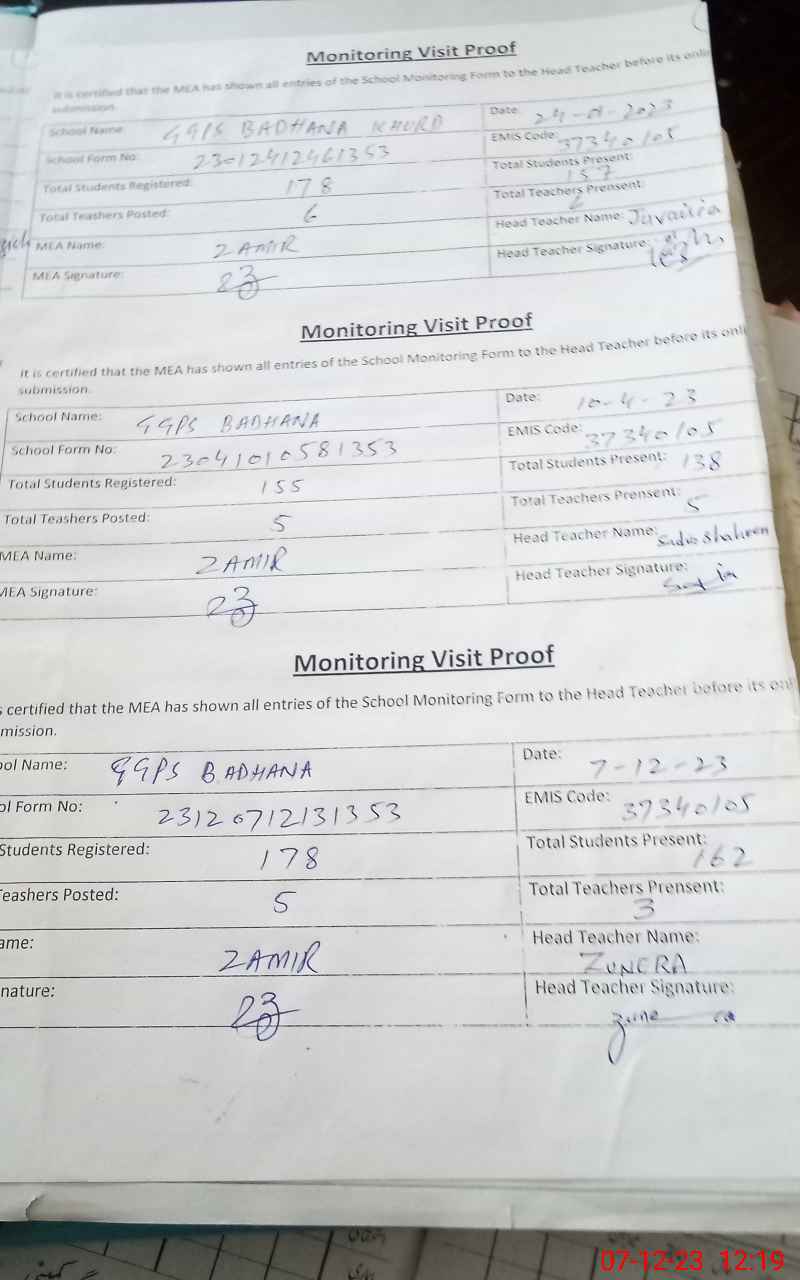 Monitoring Visit Proof
It is certified that the MEA has shown all entries of the School Monitoring Form to the Head Teacher before its onli
submission.
School Name: GGPS BADHANA KHURD Date: 24-01-2023
School Form No: 23012412461353 EMIS Code: 37340105
Total Students Registered: 178 Total Students Present: 157
Total Teashers Posted: 6 Total Teachers Prensent: 6
MEA Name: ZAMIR Head Teacher Name: Javairia
MEA Signature: Head Teacher Signature:
Monitoring Visit Proof
It is certified that the MEA has shown all entries of the School Monitoring Form to the Head Teacher before its onli
submission.
School Name: GGPS BADHANA Date: 10-4-23
School Form No: 23041010581353 EMIS Code: 37340105
Total Students Registered: 155 Total Students Present: 138
Total Teashers Posted: 5 Total Teachers Prensent: 5
MEA Name: ZAMIR Head Teacher Name: Shaheen
MEA Signature: Head Teacher Signature:
Monitoring Visit Proof
s certified that the MEA has shown all entries of the School Monitoring Form to the Head Teacher before its onli
mission.
ool Name: GGPS BADHANA Date: 7-12-23
ol Form No: 23120712131353 EMIS Code: 37340105
Students Registered: 178 Total Students Present: 162
Teashers Posted: 5 Total Teachers Prensent: 3
ame: ZAMIR Head Teacher Name: ZUNERA
nature: Head Teacher Signature:
07-12-23 12:19